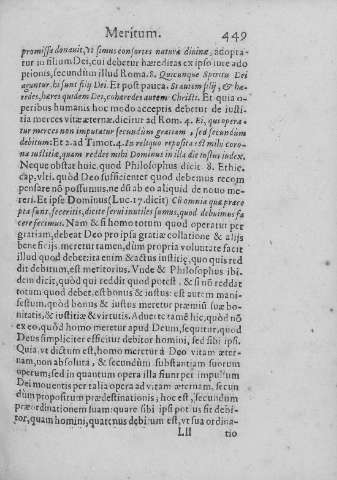 Meritum. 449
promisse donauit, vt simus consortes naturæ diuinæ, adopta-
tur in filium Dei, cui debetur hæreditas ex ipso iure ado
ptionis, secundùm illud Roma. 8. Quicunque Spiritu Dei
aguntur, hi sunt filij Dei. Et post pauca. Si autem filij, & hæ-
redes, hæredes quidem Dei, cohæredes autem Christi. Et quia o-
peribus humanis hoc modo acceptis debetur de iusti-
tia merces vitæ æternæ, dicitur ad Rom. 4. Ei, qui opera-
tur merces non imputatur secundùm gratiam, sed secundùm
debitum: Et 2. ad Timot. 4. In reliquo reposita est mihi coro-
na iustitiæ, quam reddet mihi Dominus in illa die iustus iudex.
Neque obstat huic, quod Philosophus dicit 8. Ethic.
cap. vlti. quòd Deo sufficienter quod debemus recom
pensare nõ possumus, ne dũ ab eo aliquid de nouo me-
reri. Et ipse Dominus (Luc. 17. dicit) Cũ omnia quæ præce
pta sunt, feceritis, dicite serui inutiles sumus, quod debuimus fa
cere fecimus. Nam & si homo totum quod operatur per
gratiam, debeat Deo pro ipsa gratiæ collatione & alijs
beneficijs, meretur tamen, dũm propria voluntate facit
illud quod debet: ita enim & actus iustitię, quo quis red
dit debitum, est meritorius. Vnde & Philosophus ibi-
dem dicit, quòd qui reddit quod potest, & si nõ reddat
totum quod debet, est bonus & iustus: est autem mani-
festum, quòd bonus & iustus meretur præmiũ suæ bo-
nitatis, & iustitiæ & virtutis. Aduerte tamẽ hic, quòd nõ
ex eo, quòd homo meretur apud Deum, sequitur, quod
Deus simpliciter efficitur debitor homini, sed sibi ipsi.
Quia vt dictum est, homo meretur à Deo vitam æter-
nam, non absolutè, & secundùm substantiam suorum
operum; sed in quantum opera illa fiunt per impulsum
Dei mouentis per talia opera ad vitam æternam, secun
dùm propositum prædestinationis; hoc est, secundùm
præordinationem suam: quare sibi ipsi potius sit debi-
tor, quam homini, quatenus debitum est, vt sua ordina-
Lll tio